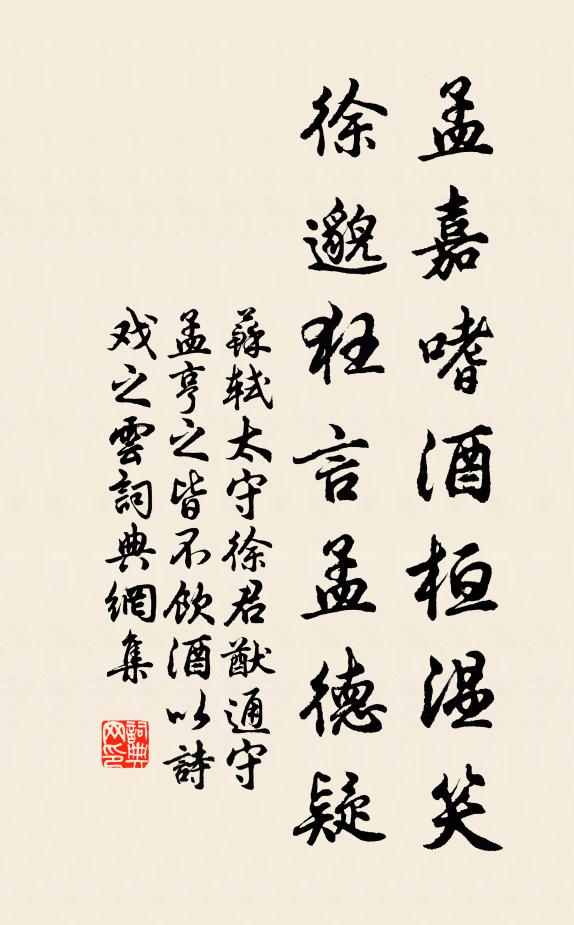 孟嘉嗜酒桓温笑
徐邈狂言孟德疑
蘇軾太守徐君猷通守
孟亨之皆不飲酒以詩
戏之雲詞典網集
詞典
网印